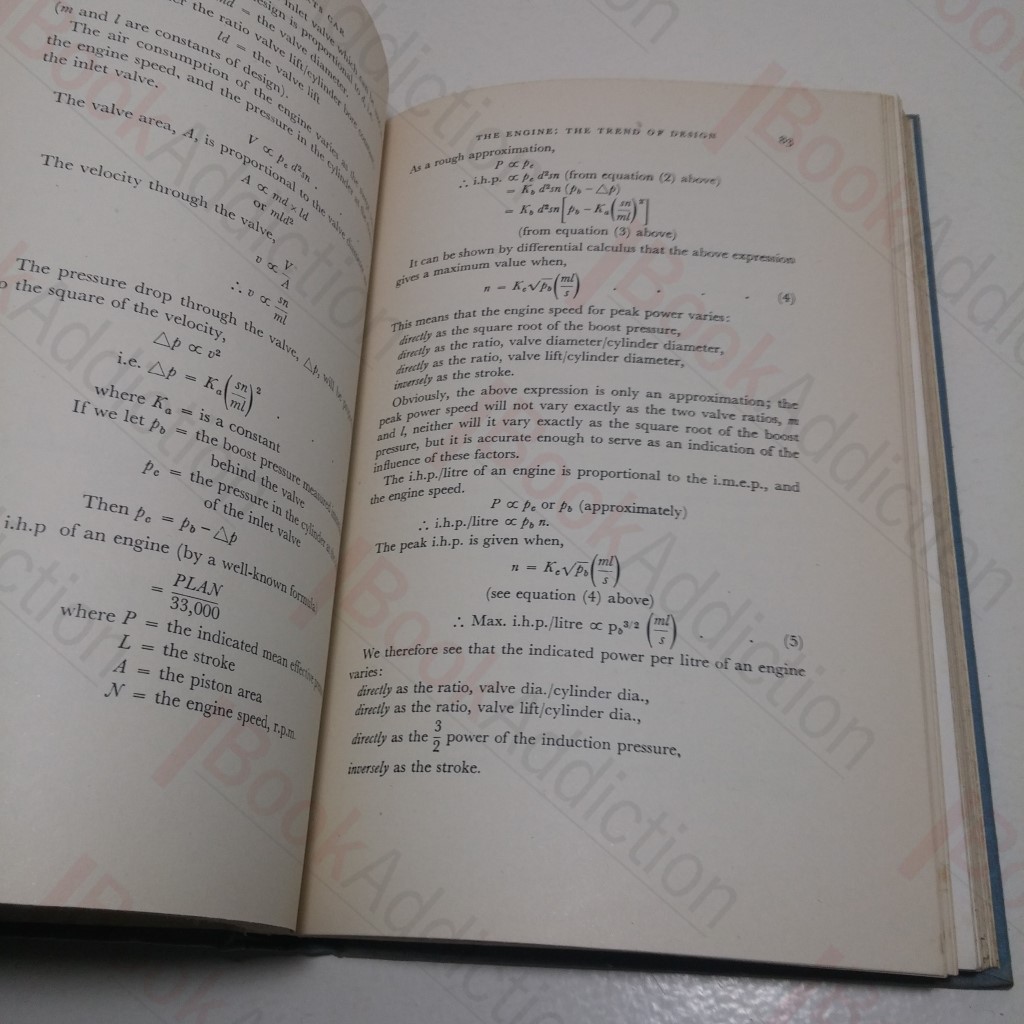 TS CAR
inlet valve which
design is proportional to d, i.e.
md = the valve diameter.
ld = the valve lift
the ratio valve lift/cylinder bore constant
(m and l are constants of design).
The air consumption of the engine varies as the
the engine speed, and the pressure in the cylinder at the
the inlet valve.
V ∝ pₑ d²sn .
The valve area, A, is proportional to the valve
A ∝ md × ld
or mld²
The velocity through the valve,
v ∝ V/A
∴ v ∝ sn/ml
The pressure drop through the valve, △p, will be
to the square of the velocity,
△p ∝ v²
i.e. △p = Kₐ(sn/ml)² .
where Kₐ = is a constant
If we let p_b = the boost pressure measured
behind the valve
p_c = the pressure in the cylinder
of the inlet valve
Then p_c = p_b − △p
i.h.p of an engine (by a well-known formula)
= PLAN/33,000
where P = the indicated mean effective
L = the stroke
A = the piston area
N = the engine speed, r.p.m.
THE ENGINE: THE TREND OF DESIGN
As a rough approximation,
P ∝ p_c
∴ i.h.p. ∝ p_c d²sn (from equation (2) above)
= K_b d²sn (p_b − △p)
= K_b d²sn[p_b − Kₐ(sn/ml)²]
(from equation (3) above)
It can be shown by differential calculus that the above expression
gives a maximum value when,
n = K_c√p_b(ml/s) . . . . (4)
This means that the engine speed for peak power varies:
directly as the square root of the boost pressure,
directly as the ratio, valve diameter/cylinder diameter,
directly as the ratio, valve lift/cylinder diameter,
inversely as the stroke.
Obviously, the above expression is only an approximation; the
peak power speed will not vary exactly as the two valve ratios, m
and l, neither will it vary exactly as the square root of the boost
pressure, but it is accurate enough to serve as an indication of the
influence of these factors.
The i.h.p./litre of an engine is proportional to the i.m.e.p., and
the engine speed.
P ∝ p_c or p_b (approximately)
∴ i.h.p./litre ∝ p_b n.
The peak i.h.p. is given when,
n = K_c√p_b(ml/s)
(see equation (4) above)
∴ Max. i.h.p./litre ∝ p_b³ᐟ² (ml/s) . . (5)
We therefore see that the indicated power per litre of an engine
varies:
directly as the ratio, valve dia./cylinder dia.,
directly as the ratio, valve lift/cylinder dia.,
directly as the 3/2 power of the induction pressure,
inversely as the stroke.
BookAddiction